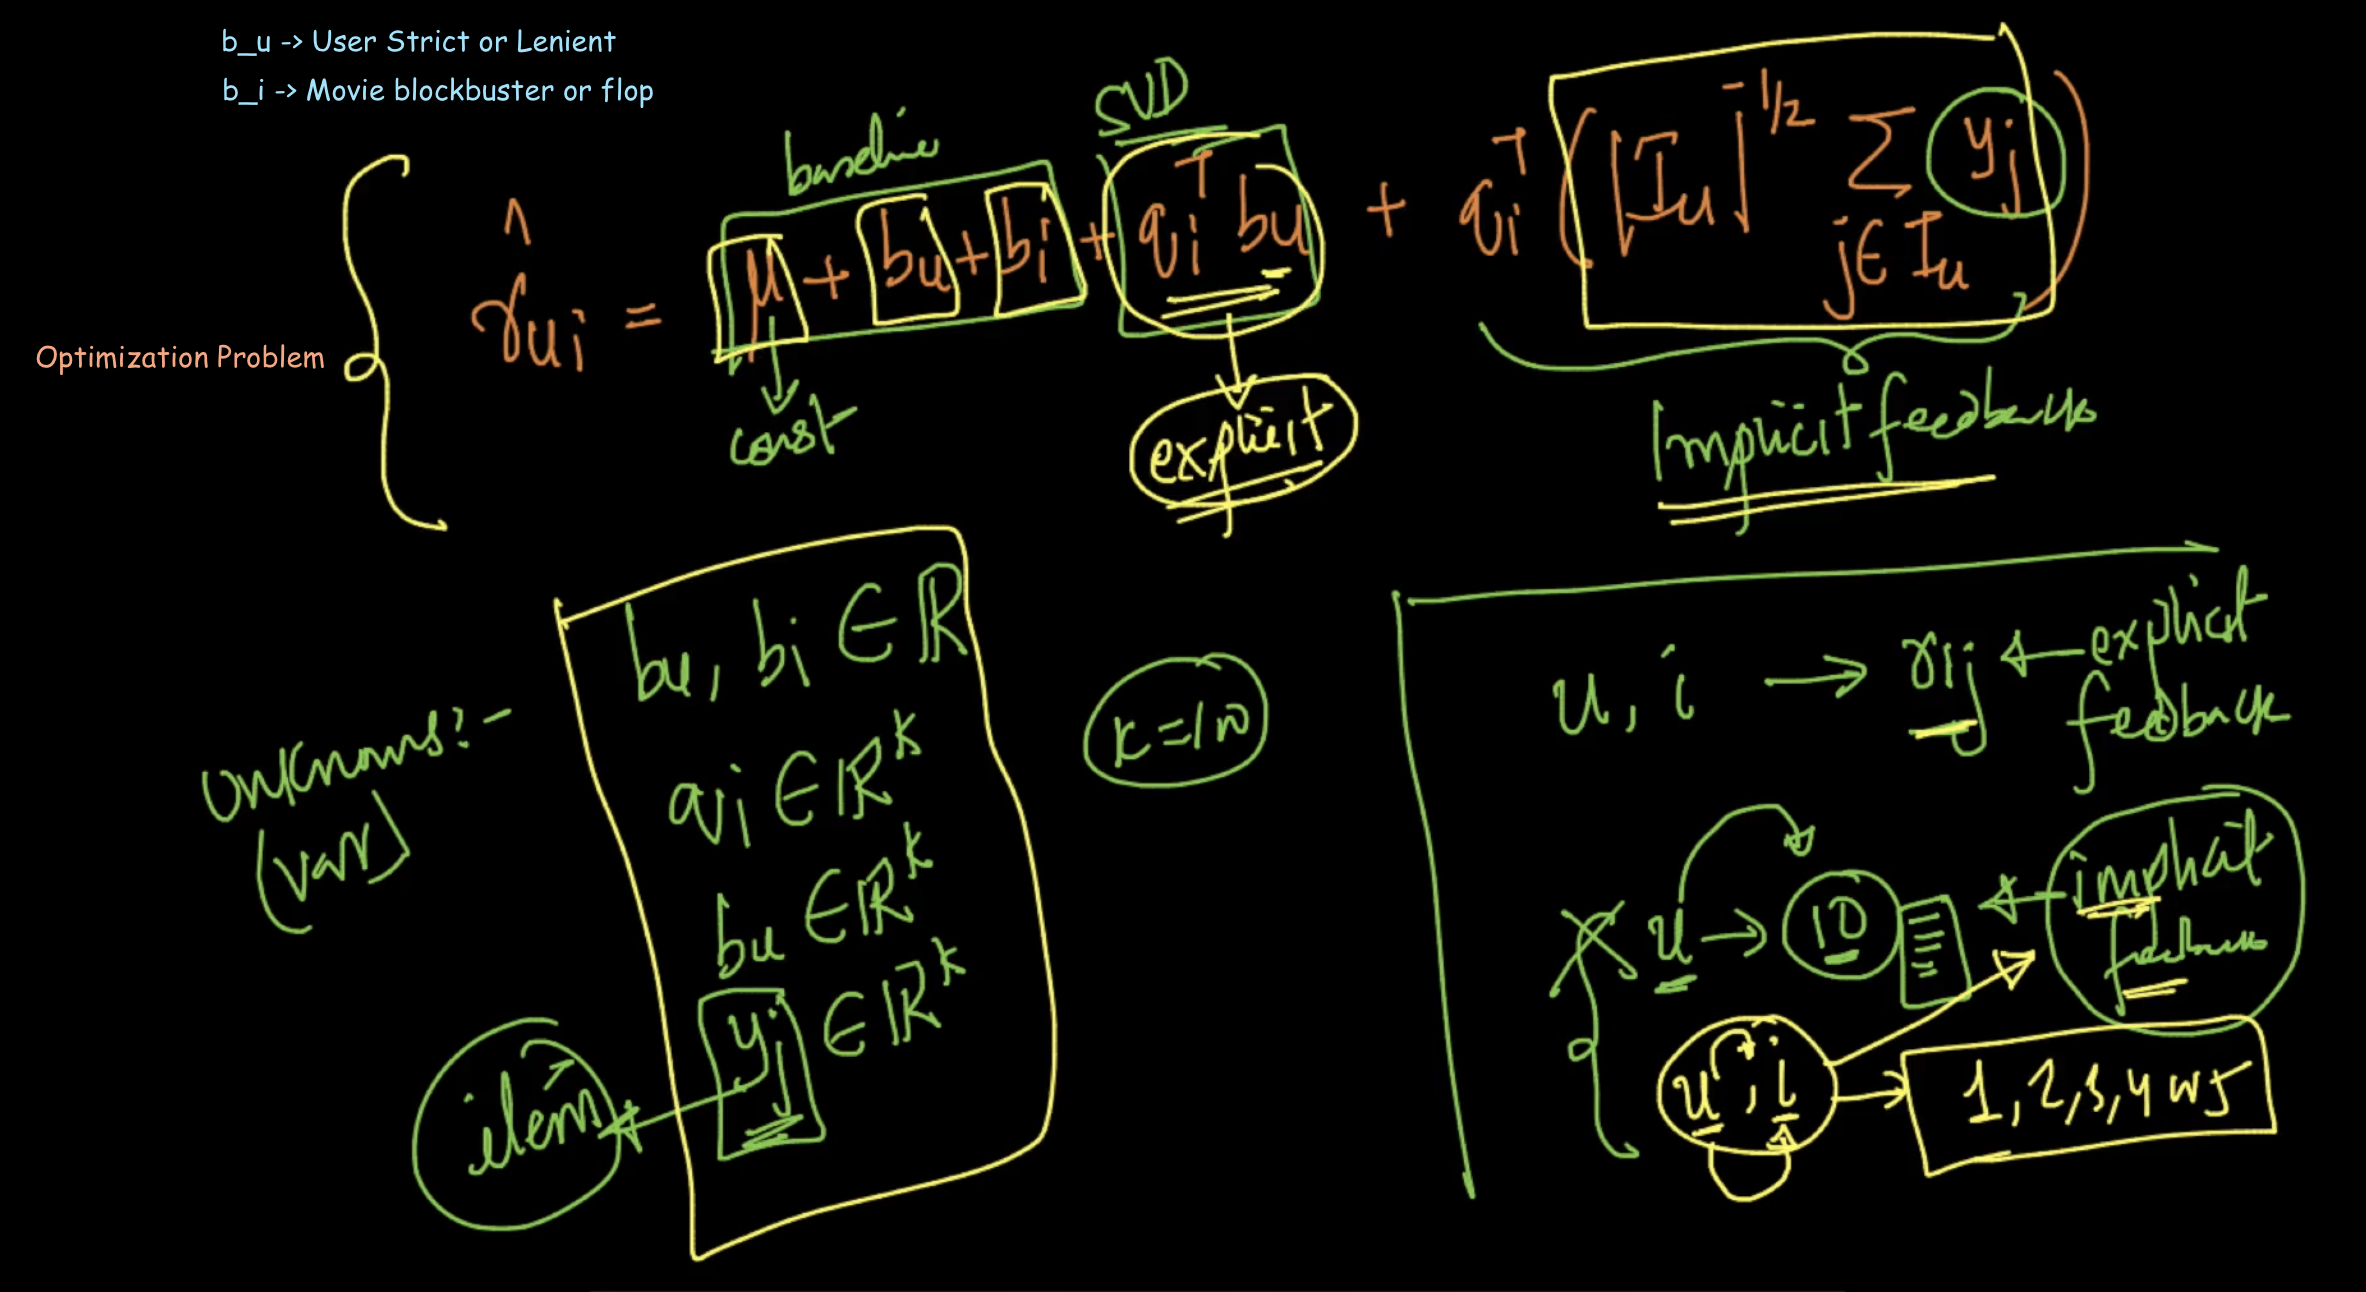 b_u -> User Strict or Lenient
b_i -> Movie blockbuster or flop
baseline
SVD
Optimization Problem
r̂ui = μ + bu + bi + qi^T bu + qi^T (|Iu|^-1/2 Σ j∈Iu yj)
const
explicit
Implicit feedback
unknowns:-
(var)
bu, bi ∈ ℝ
qi ∈ ℝ^k
bu ∈ ℝ^k
yj ∈ ℝ^k
item
k=10
u, i → rij ← explicit
feedback
u → 10 ← implicit
feedback
u, i → 1, 2, 3, 4 or 5